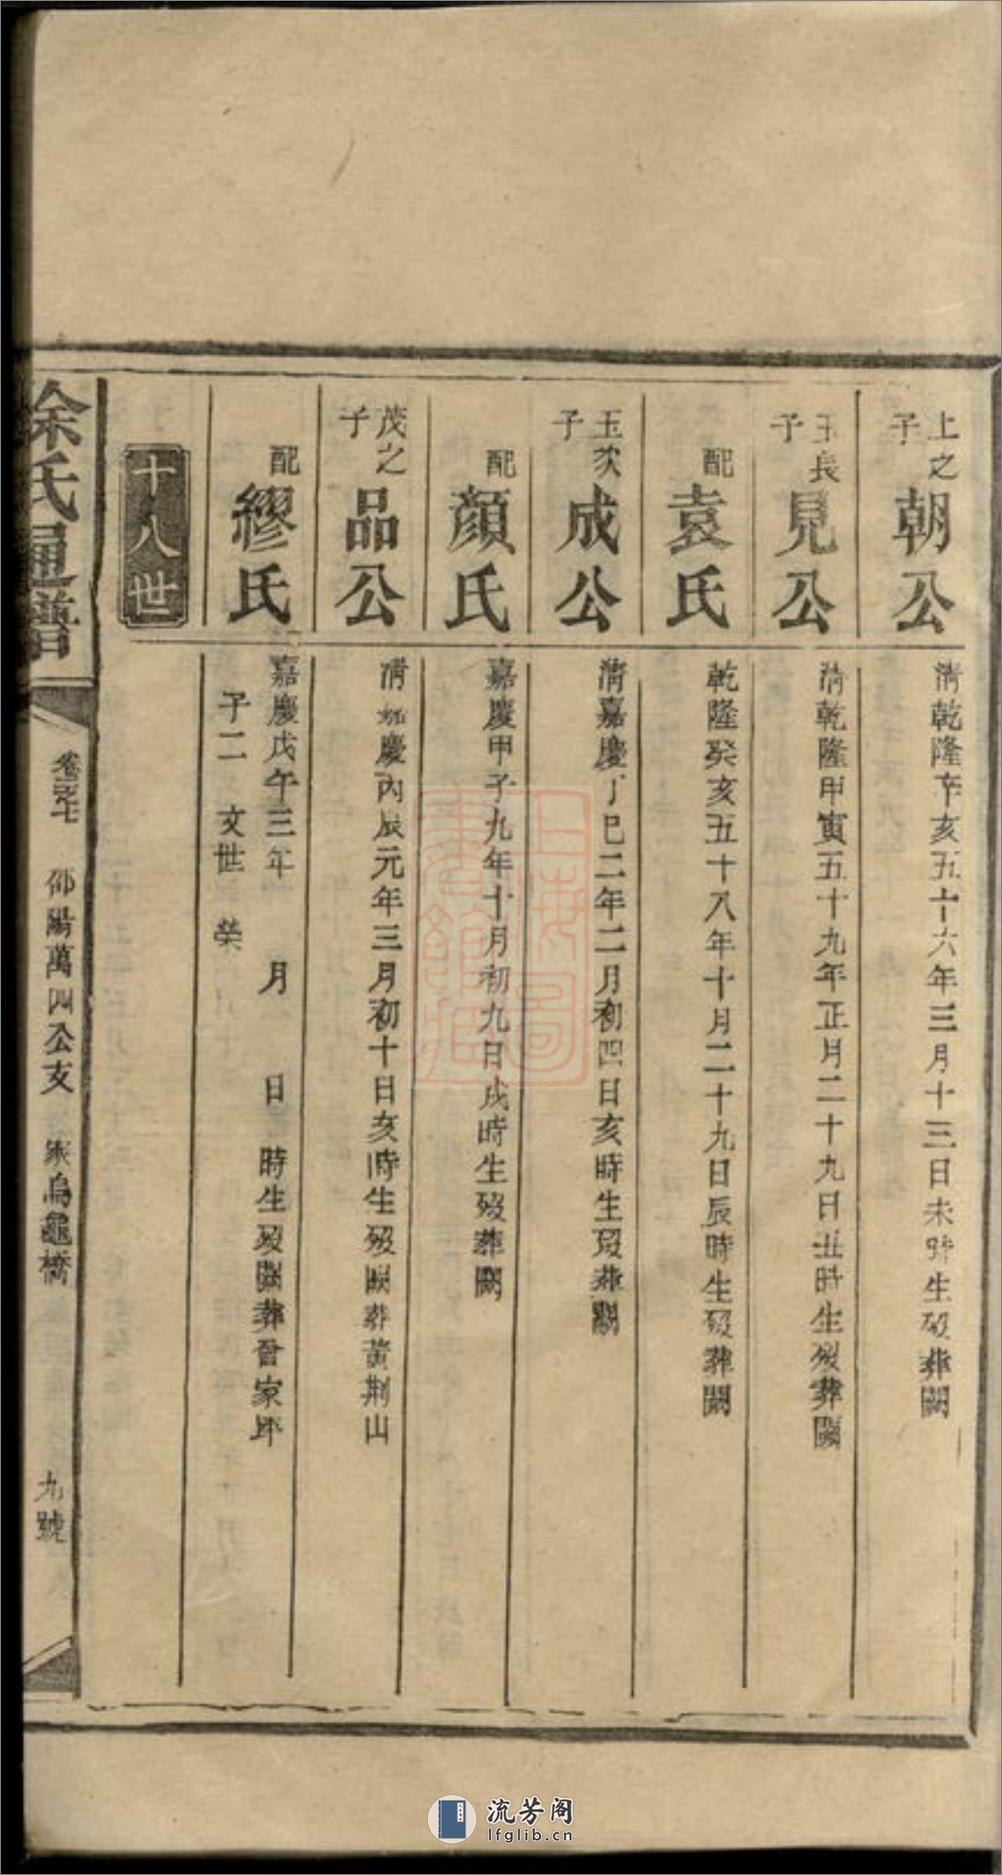 上之子
朝公
清乾隆辛亥五十六年三月十三日未時生歿葬闕
玉長子
見公
清乾隆甲寅五十九年正月二十九日丑時生歿葬闕
配
袁氏
乾隆癸亥五十八年十月二十九日辰時生歿葬闕
玉次子
成公
清嘉慶丁巳二年二月初四日亥時生歿葬闕
配
顏氏
嘉慶甲子九年十月初九日戌時生歿葬闕
茂之子
品公
清嘉慶丙辰元年三月初十日亥時生歿闕葬黃荆山
配
繆氏
嘉慶戊午三年 月 日時生歿闕葬曾家坪
子二 文世 榮
十八世
徐氏通譜
卷三之七 邵陽萬四公支 烏龜橋 九號
上海圖書館藏
流芳阁
lfglib.cn